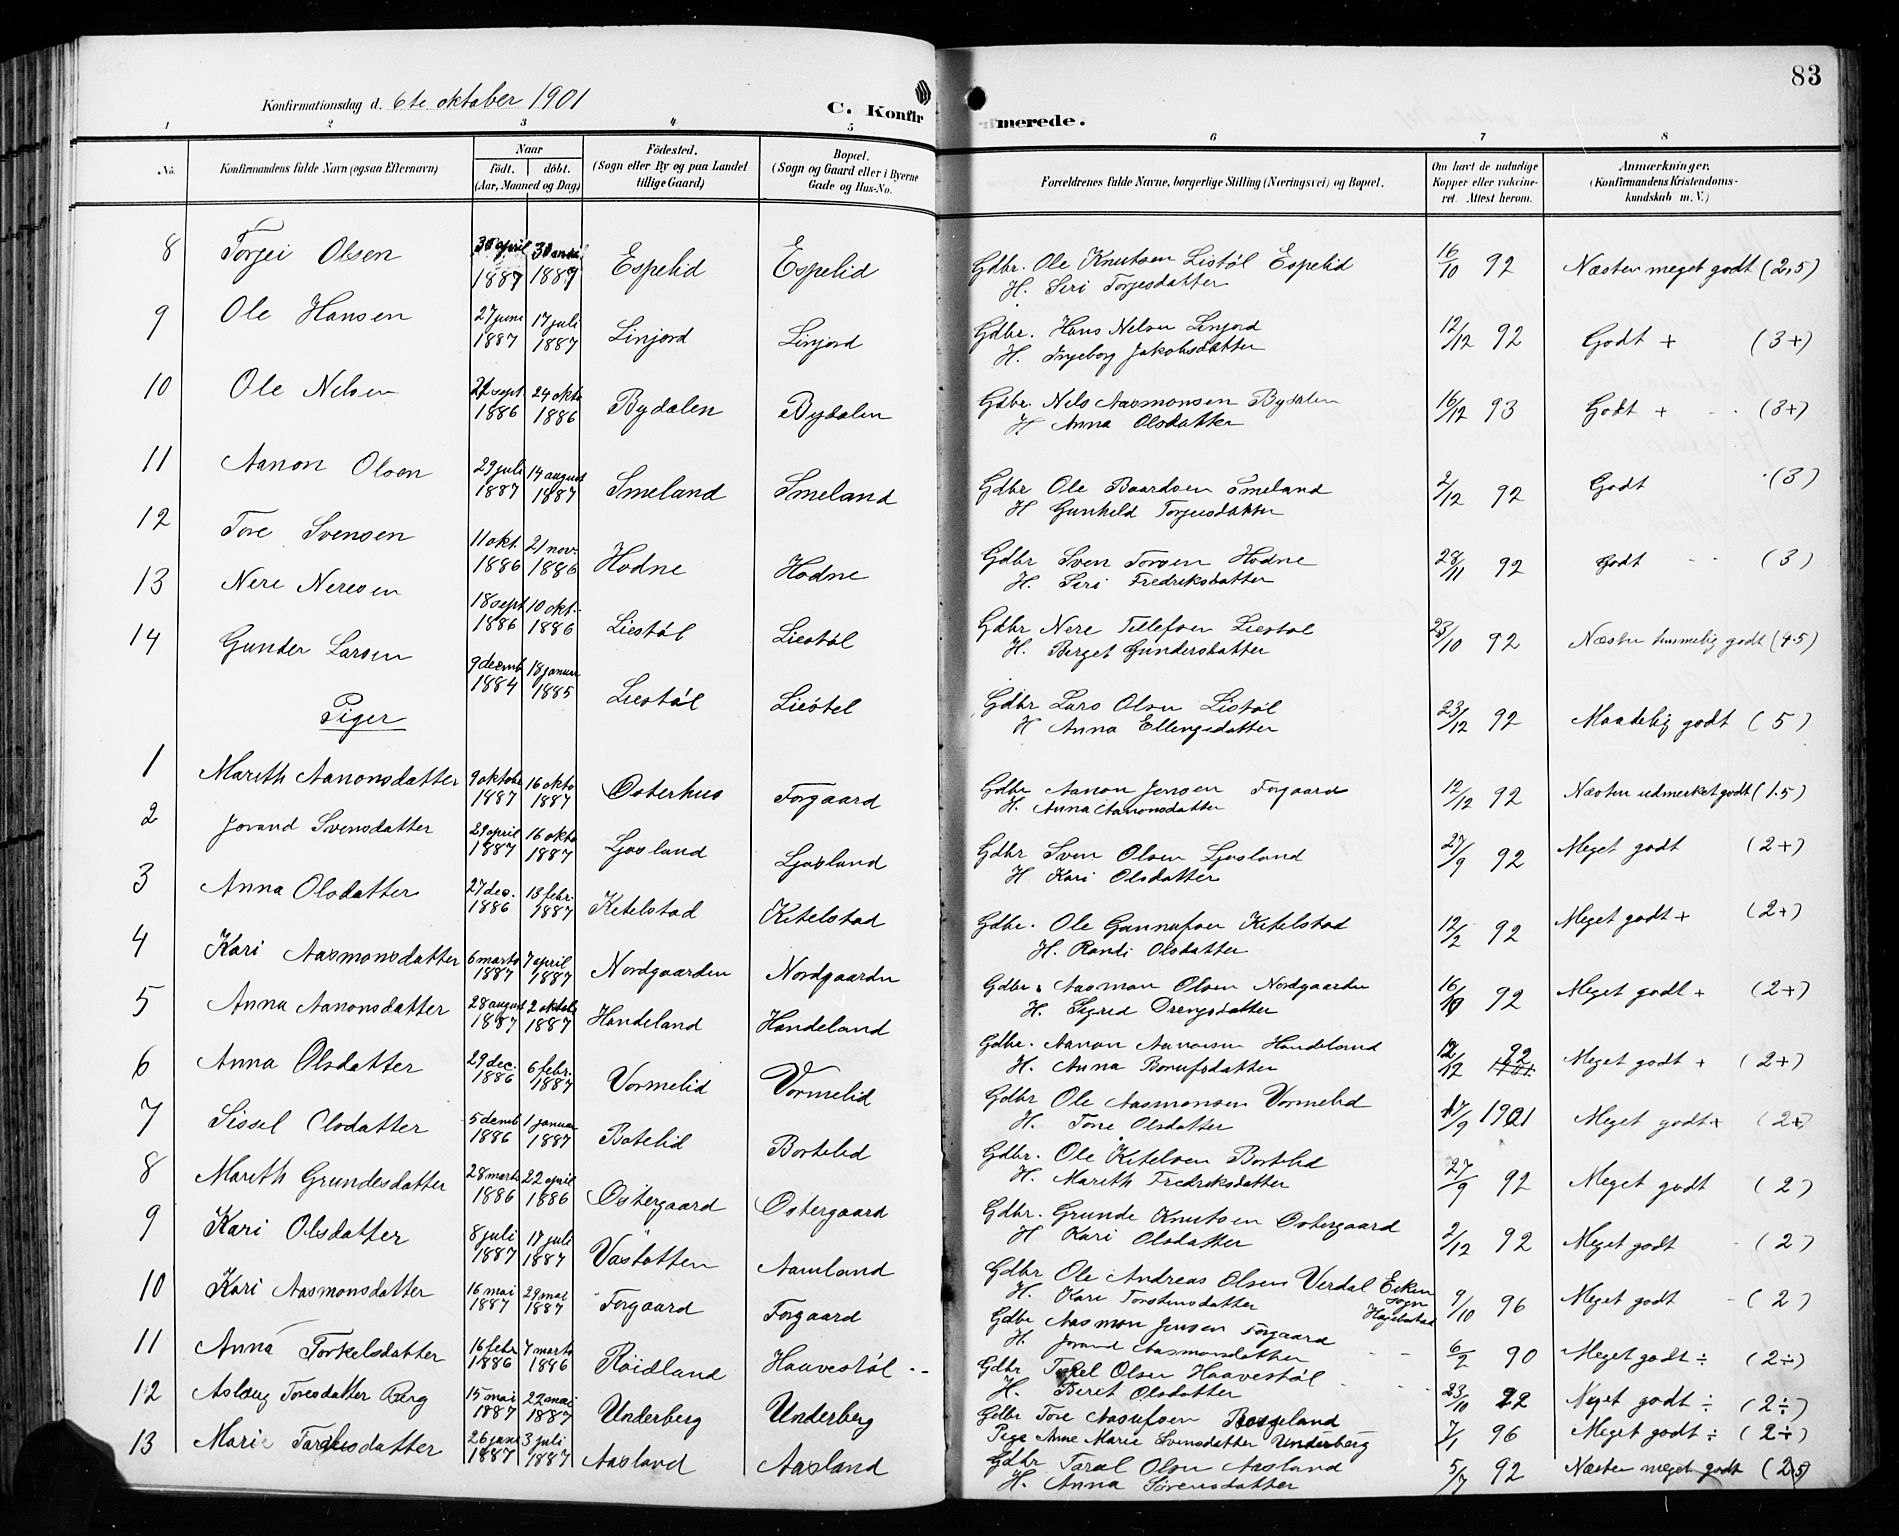 83
Konfirmationsdag d. 6te oktober 1901
C. Konfir
merede.
1 2 3 4 5 6 7 8
No.
Konfirmandens fulde Navn (ogsaa Efternavn)
Naar
födt. döbt.
(Aar, Maaned og Dag)
Födested.
(Sogn eller By og paa Landet
tillige Gaard)
Bopæl.
(Sogn og Gaard eller i Byerne
Gade og Hus-No.
Forældrenes fulde Navne, borgerlige Stilling (Næringsvei) og Bopæl.
Om havt de naturlige
Kopper eller vakcine-
ret. Attest herom.
Anmærkninger.
(Konfirmandens Kristendoms-
kundskab m. V.)
8 Torjei Olsen 30 april 1887 30 1887 Espelid Espelid Gdbr. Ole Knutsen Listöl Espelid 16/10 92 Næsten meget godt (2,5)
H. Siri Torjesdatter
9 Ole Hansen 27 juni 1887 17 juli 1887 Linjord Linjord Gdbr. Hans Nelsen Linjord 12/12 92 Godt + (3+)
H. Ingeborg Jakobsdatter
10 Ole Nelsen 22 sept 1886 24 okto 1886 Bydalen Bydalen Gdbr. Nels Aasmonsen Bydalen 16/12 93 Godt + (3+)
H. Anna Olsdatter
11 Aanon Olsen 29 juli 1887 14 august 1887 Smeland Smeland Gdbr Ole Baardsen Smeland 2/12 92 Godt (3)
H Gunhild Torjusdatter
12 Tore Svensen 11 okt. 1886 21 nov. 1886 Hodne Hodne Gdbr Sven Torsen Hodne 28/11 92 Godt (3)
H. Siri Fredriksdatter
13 Nere Neresen 18 sept 1886 10 okt. 1886 Liestöl Liestöl Gdbr Nere Tellefsen Liestol 23/10 92 Næsten temmelig godt (4.5)
H. Berget Gundersdatter
14 Gunder Larsen 9 decemb 1884 18 januar 1885 Liestöl Liestöl Gdbr Lars Olsen Listöl 23/12 92 Maadelig godt (5)
H Anna Ellengsdatter
Piger
1 Marith Aanonsdatter 9 oktobr 1887 16 okto 1887 Osterhus Forgaard Gdbr Aanon Jensen Forgaard 12/12 92 Næsten udmerket godt (1.5)
H. Anna Aanonsdatter
2 Jorand Svensdatter 29 april 1887 16 okto 1887 Ljosland Ljosland Gdbr Sven Olsen Ljosland 27/9 92 Meget godt (2+)
H Kari Olsdatter
3 Anna Olsdatter 27 des. 1886 13 febr. 1887 Ketelstad Ketelstad Gdbr. Ole Gunnufsen Ketelstad 12/2 92 Meget godt + (2+)
H. Randi Olsdatter
4 Kari Aasmonsdatter 6 marts 1887 7 april 1887 Nordgaarden Nordgaarden Gdbr. Aasmon Olsen Nordgaarden 16/10 92 Meget godt + (2+)
H. Sigrid Drengsdatter
5 Anna Aanonsdatter 28 august 1887 2 oktob 1887 Handeland Handeland Gdbr. Aanon Aanonsen Handeland 12/12 92 Meget godt + (2+)
H. Anna Bonufsdatter
6 Anna Olsdatter 29 dec. 1886 6 febr. 1887 Vormelid Vormelid Gdbr Ole Aasmonsen Vormelid 17/9 1901 Meget godt + (2+)
H. Tone Olsdatter
7 Sissel Olsdatter 5 demb 1886 1 januar 1887 Botelid Bortelid Gdbr. Ole Ketelsen Bortelid 27/9 92 Meget godt (2)
H. Marith Fredriksdatter
8 Marith Grundesdatter 28 marts 1886 22 april 1886 Ostergaard Ostergaard Gdbr. Grunde Knutsen Ostergaard 2/12 92 Meget godt (2)
H Kari Olsdatter
9 Kari Olsdatter 8 juli 1887 17 juli 1887 Vastötten Aamland Gdbr Ole Andreas Olsen Verdal Eeken Sogn Hægebostad 9/10 96 Meget godt (2)
H. Kari Torstensdatter
10 Kari Aasmonsdatter 16 mai 1887 29 mai 1887 Forgaard Forgaard Gdbr Aasmon Jensen Forgaard 6/2 90 Meget godt ÷ (2÷)
H. Jorand Aasmonsdatter
11 Anna Torkelsdatter 16 febr 1886 7 marts 1886 Röidland Haavestöl Gdbr Torkel Olsen Haavestöl 23/10 92 Meget godt ÷ (2÷)
H. Beret Olsdatter
12 Aslaug Toresdatter Berg 15 mai 1887 22 mai 1887 Underberg Underberg Gdbr Tore Aasulfsen Breeland 7/1 96 Meget godt ÷ (2÷)
Pige Anne Marie Svensdatter Underberg
13 Marie Taralsdatter 26 1887 3 juli 1887 Aasland Aasland Gdbr Taral Olsen Aasland 5/7 92 Næsten meget godt (2,5)
H. Anna Sörensdatter